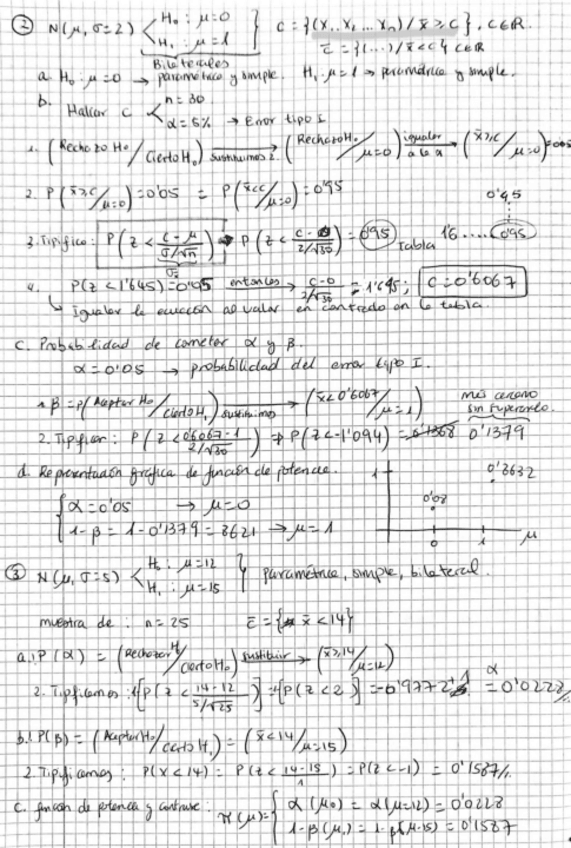 ② N(μ, σ=2) < H₀ : μ=0 H₁ : μ=1 } C = {(x₁, x₂ ... xₙ) / x̄ ≥ c}, c∈ℝ.
C̄ = {(...) / x̄ < c} c∈ℝ
Bilaterales
a. H₀ : μ=0 → paramétrica y simple. H₁ : μ=1 → paramétrica y simple.
b. Hallar c < n=30 α=5% → Error tipo I
1. (Rechazo H₀ / Cierto H₀) sustituimos 2. (Rechazo H₀ / μ=0) igualar a la α (x̄≥c / μ=0)=0'05
2. P(x̄≥c / μ=0)=0'05 = P(x̄<c / μ=0)=0'95
3. Tipifico: P(z < c-μ / σ/√n) → P(z < c-0 / 2/√30) = 0'95 Tabla 1'6 .... 0'95
0'45
4. P(z<1'645)=0'95 entonces c-0 / 2/√30 = 1'645; C=0'6067
↳ Igualar la ecuación al valor encontrado en la tabla.
c. Probabilidad de cometer α y β.
α=0'05 → probabilidad del error tipo I.
1. β = P(Aceptar H₀ / cierto H₁) sustituimos (x̄<0'6067 / μ=1)
más cercano sin superarlo.
2. Tipificar: P(z < 0'6067-1 / 2/√30) → P(z<-1'094) = 0'1379
d. Representación gráfica de función de potencia.
{ α=0'05 → μ=0
1-β = 1-0'1379 = 8621 → μ=1
1 0'8632
0'08
0 1 μ
③ N(μ, σ=5) < H₀ : μ=12 H₁ : μ=15 } paramétrica, simple, bilateral.
muestra de : n=25 C̄ = { x̄ < 14}
a.1. P(α) = (Rechazar H₀ / Cierto H₀) sustituir (x̄≥14 / μ=12)
2. Tipificamos: 1-[P(z < 14-12 / 5/√25)] = 1-[P(z<2)] = -0'9772+1 α = 0'0228%
b.1. P(β) = (Aceptar H₀ / cierto H₁) = (x̄<14 / μ=15)
2. Tipificamos: P(x<14) = P(z < 14-15 / 1) = P(z<-1) = 0'1587%
c. función de potencia y contraste : π(μ) = { α(μ₀) = α(μ=12) = 0'0228
1-β(μ₁) = 1-β(μ=15) = 0'1587